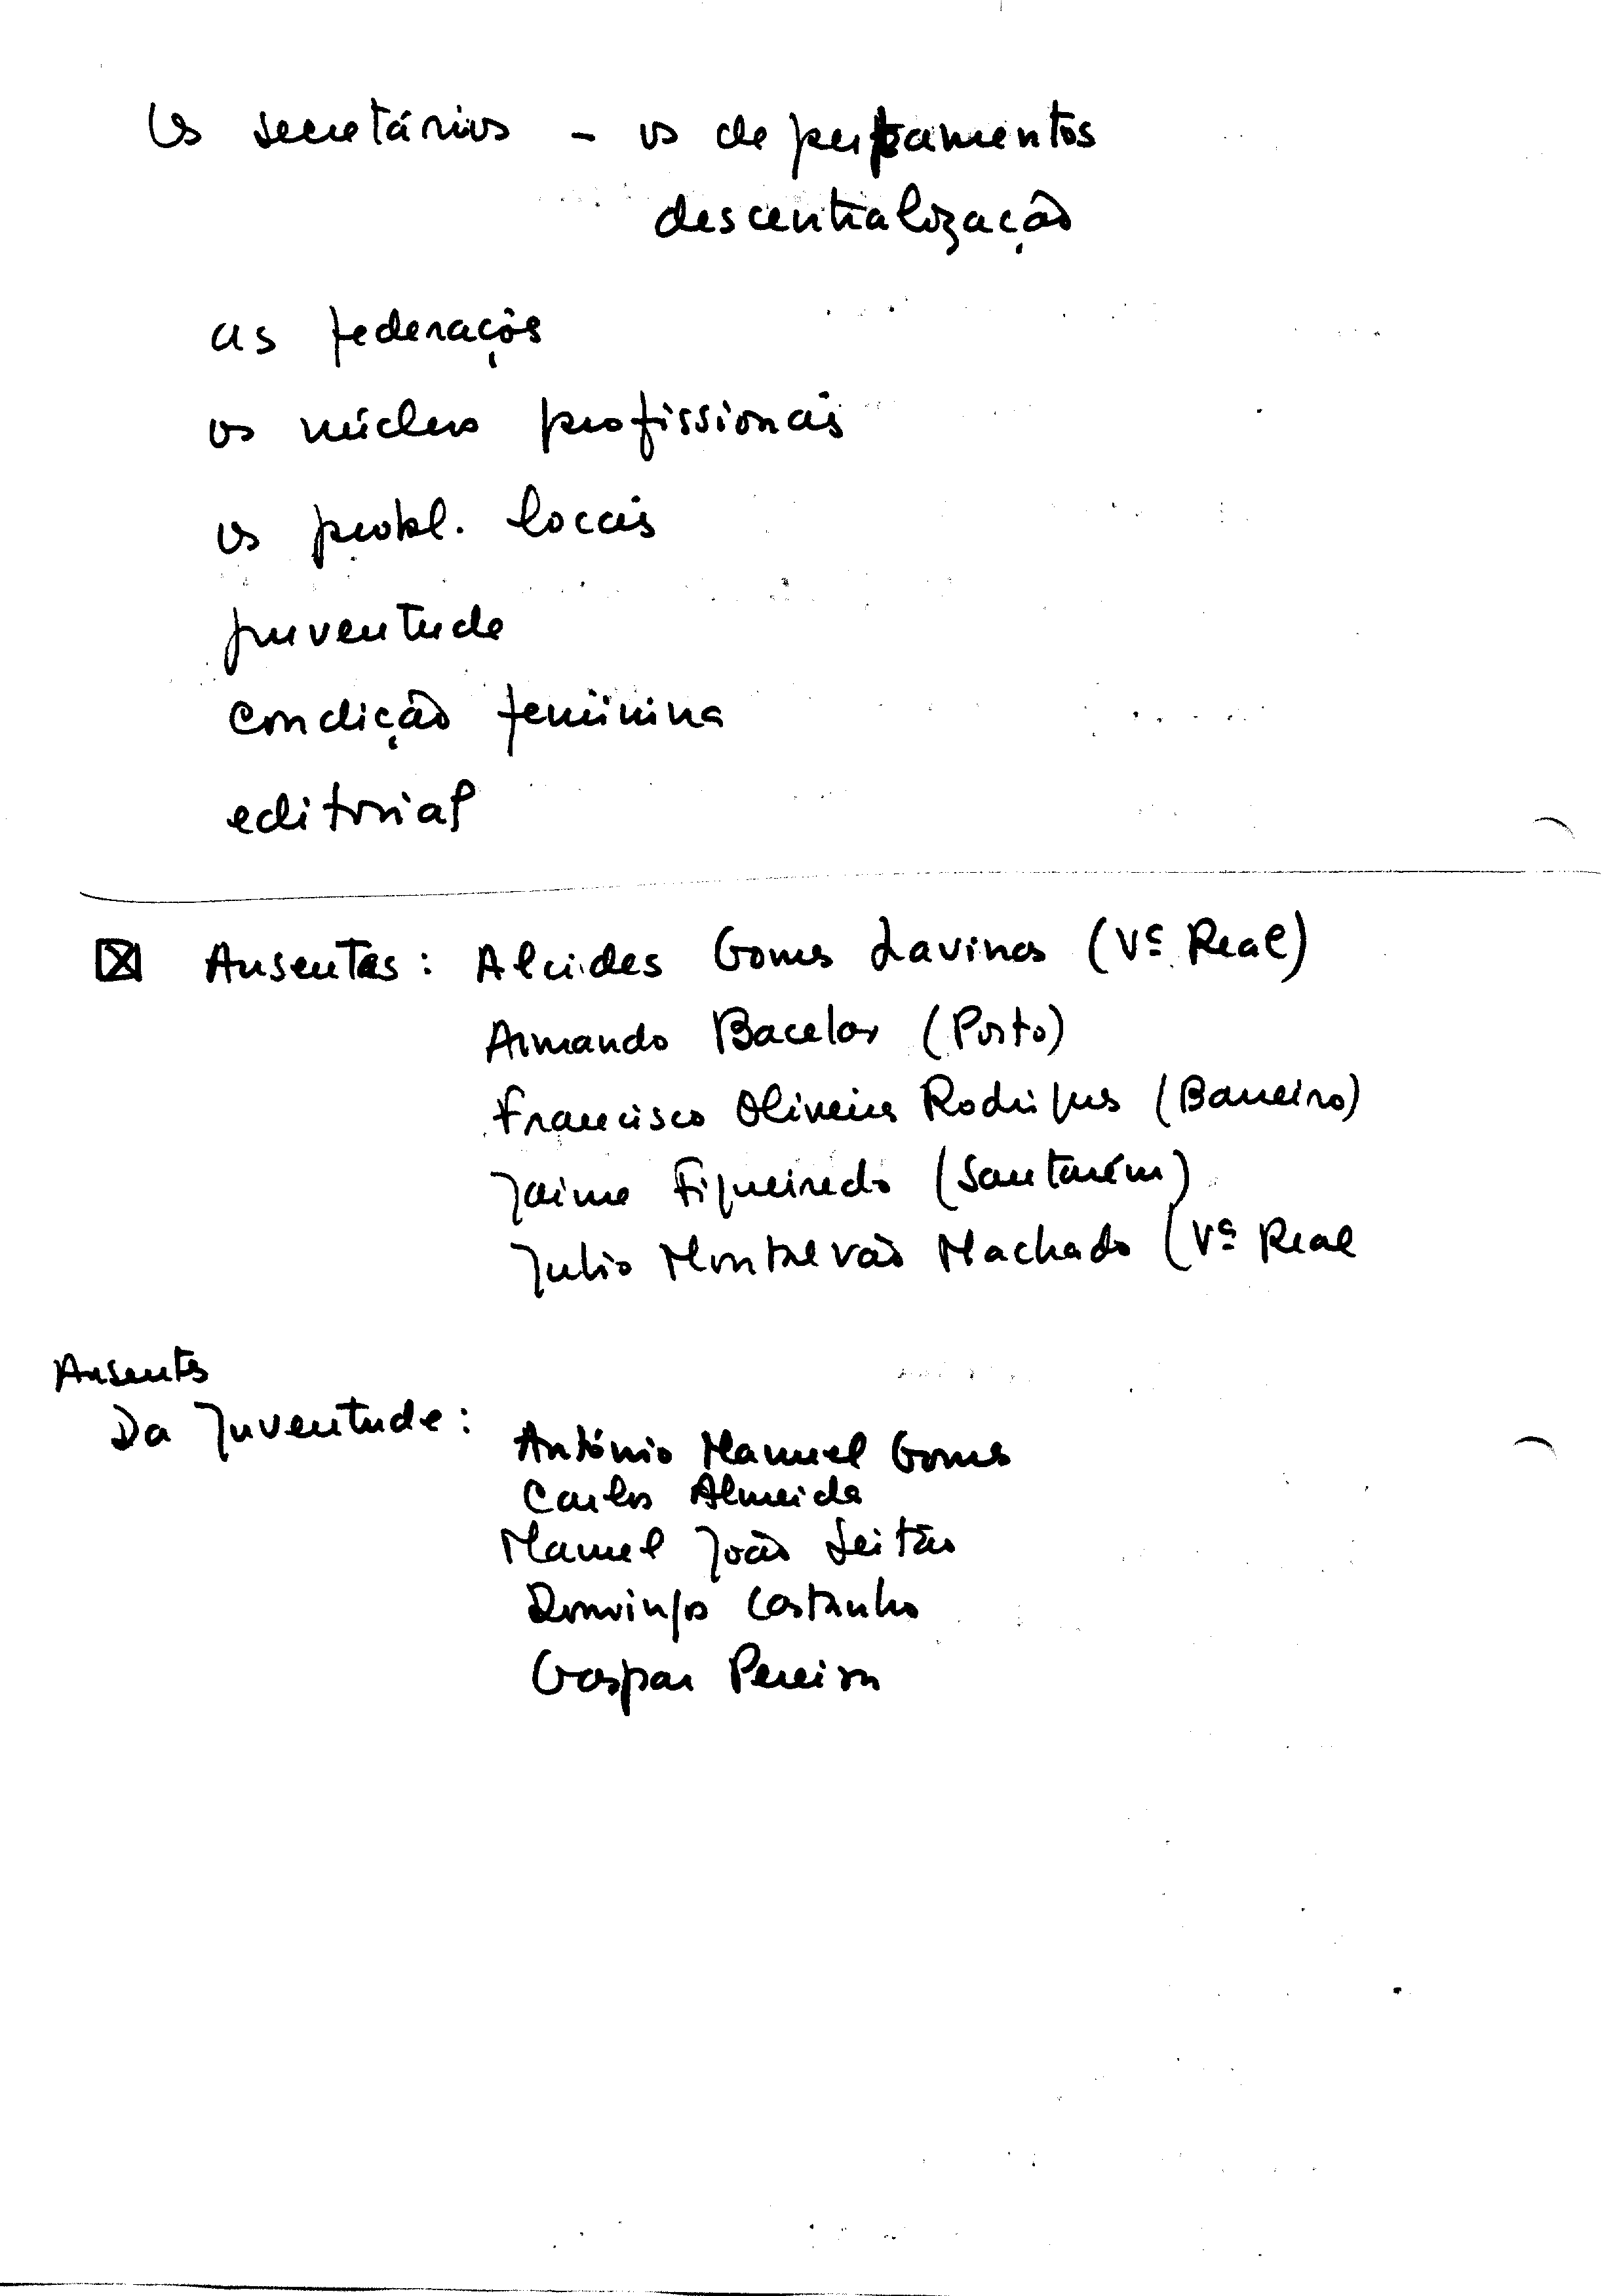 Os secretários – os departamentos
descentralização
as federações
os núcleos profissionais
os probl. locais
juventude
condição feminina
editorial
☒ Ausentes: Alcides Gomes Lavinas (Vª Real)
Armando Bacelar (Porto)
Francisco Oliveira Rodrigues (Barreiro)
Jaime Figueiredo (Santarém)
Julio Montalvão Machado (Vª Real
Ausentes
Da Juventude:
António Manuel Gomes
Carlos Almeida
Manuel João Leitão
Domingos Castanho
Gaspar Pereira